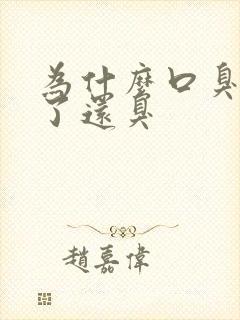 為什麼口臭
了還臭
趙嘉偉